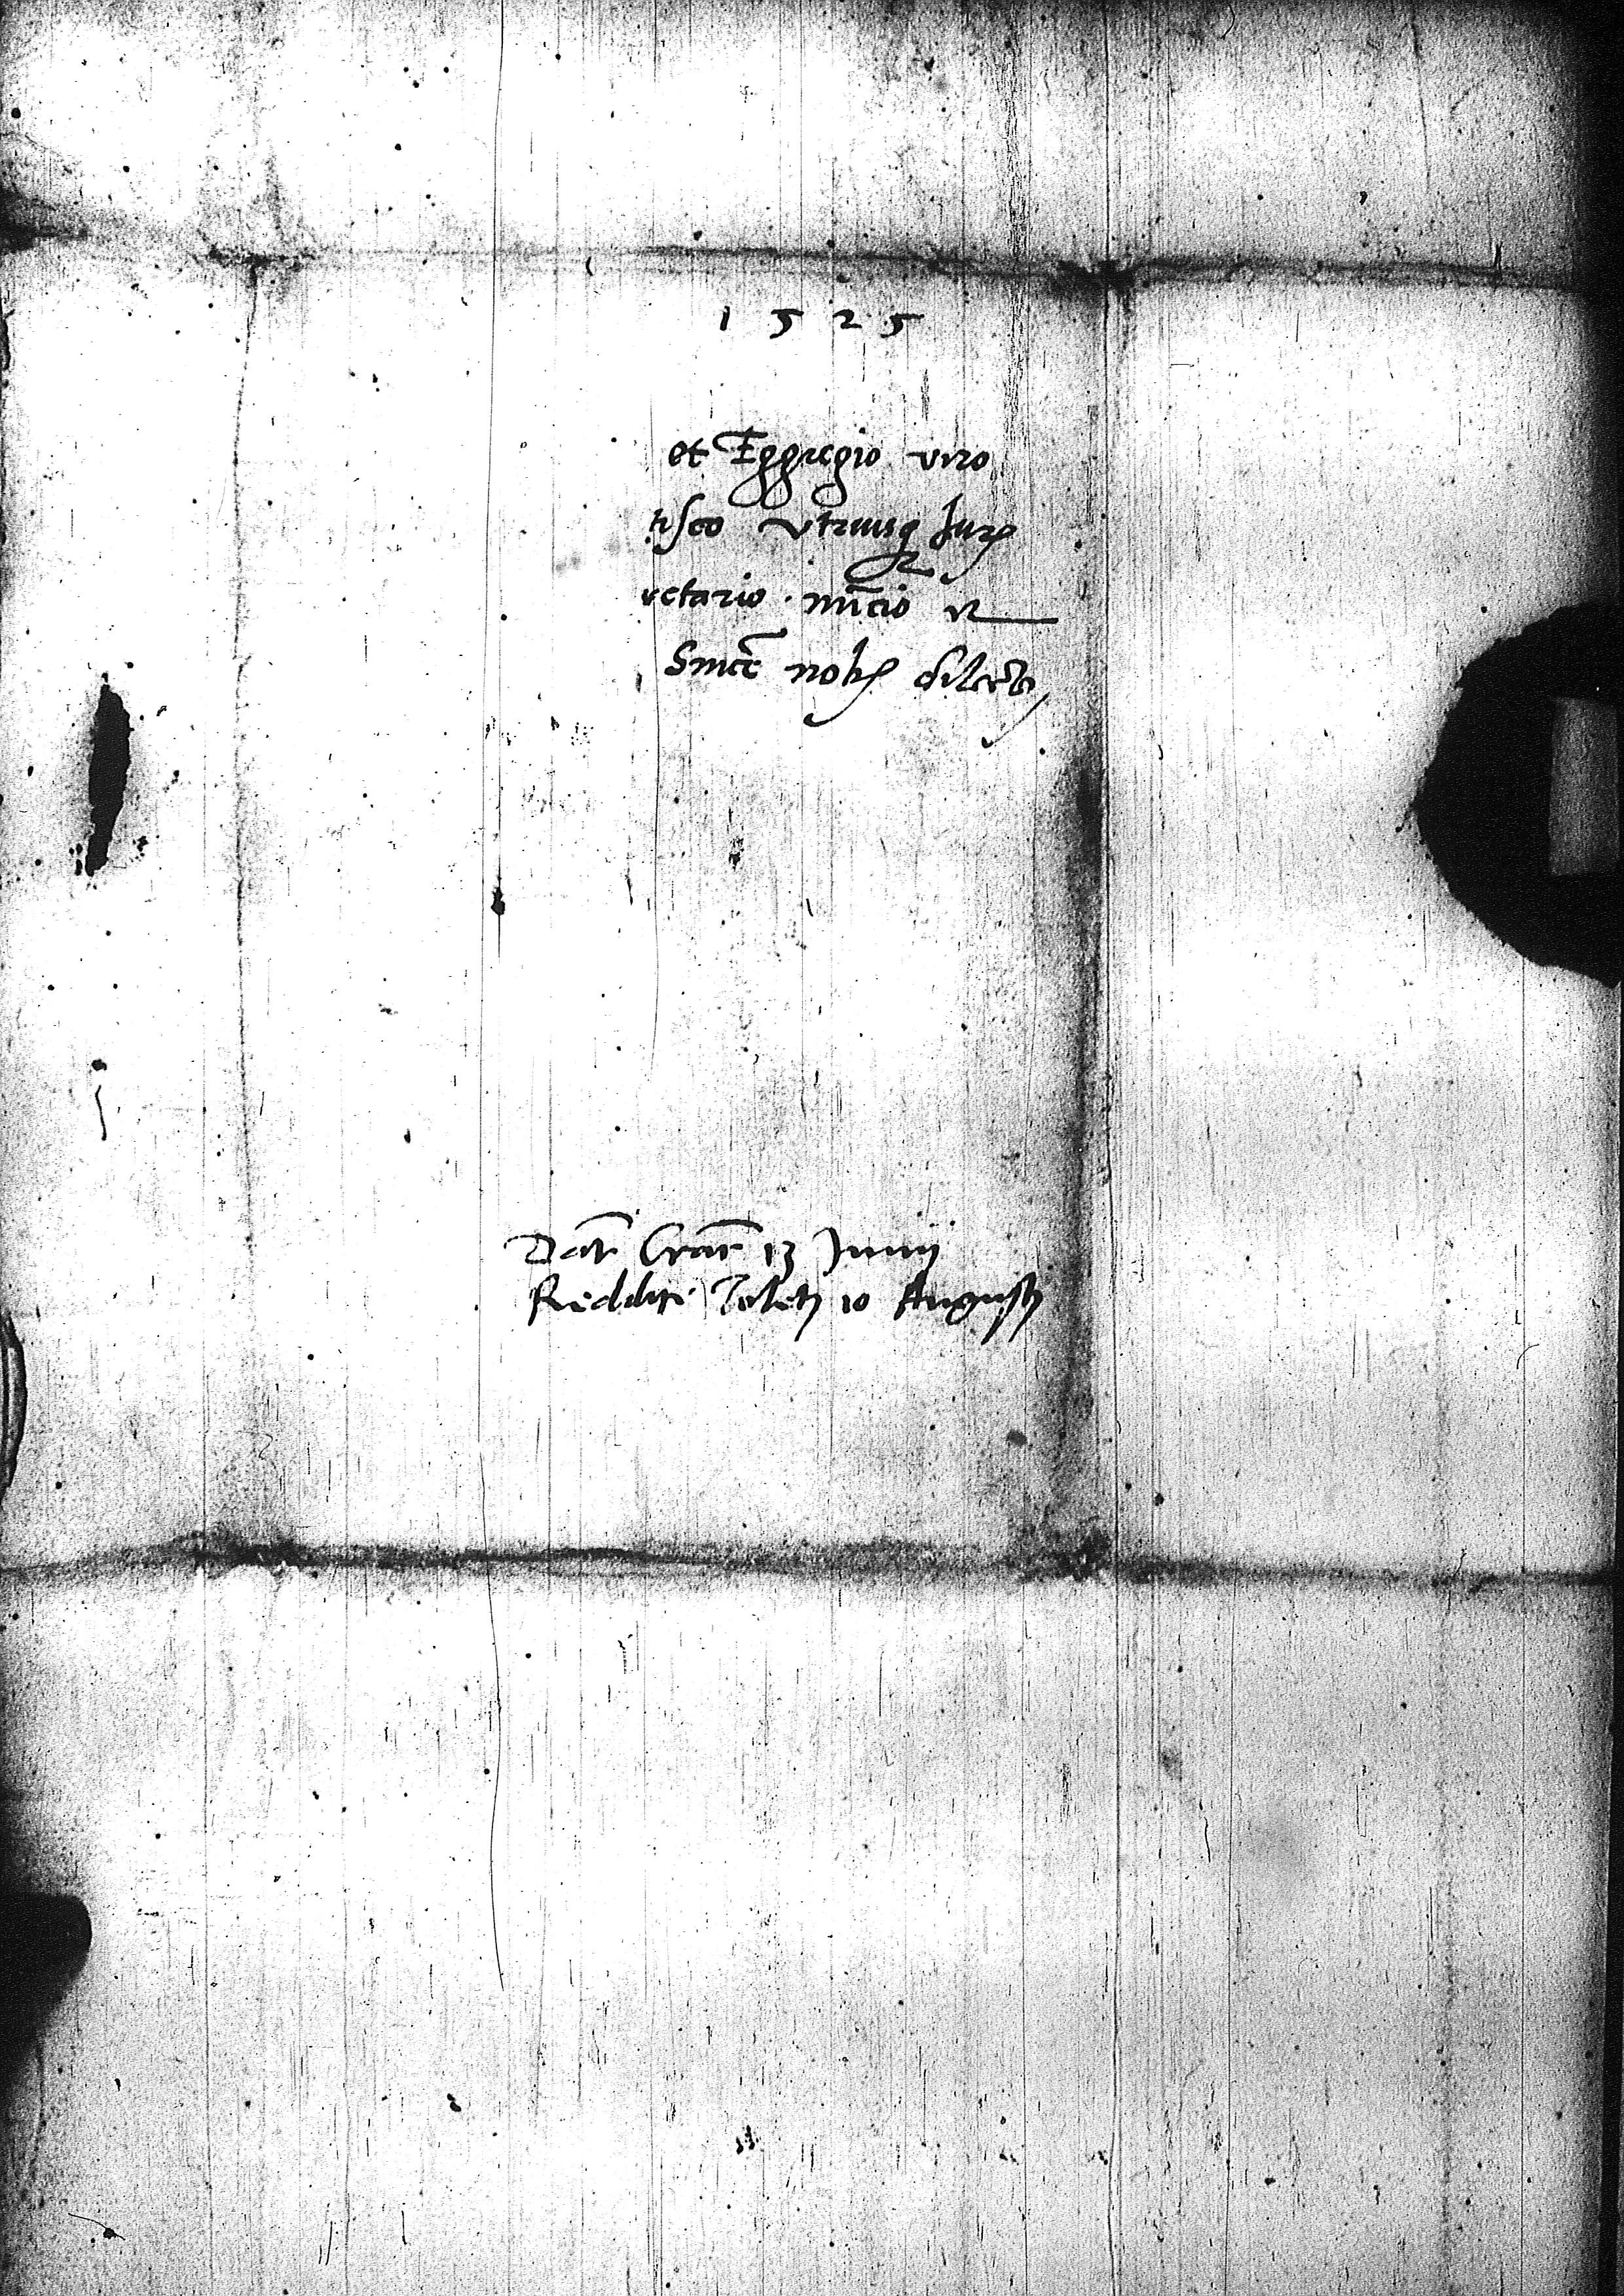 1525
et Eggregio viro
tisco Vtriusq Juris
cretario nūcio
Sincē nobis dilecto
Dat Crac 13 Junij
Reddite Toleti 10 Augusti